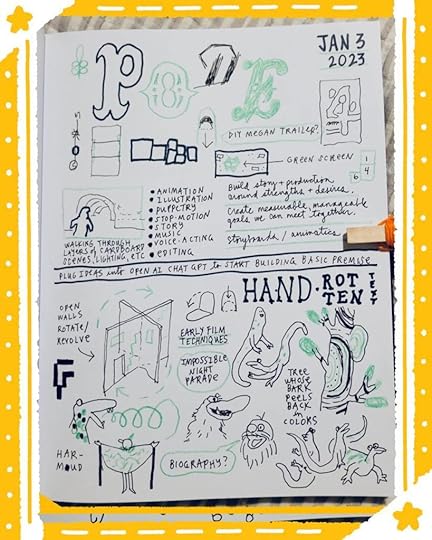 JAN 3
2023
DIY MEGAN TRAILER?
GREEN SCREEN
1
4
6
Build story + production
around strengths + desires.
Create measurable, manageable
goals we can meet together.
Storyboards / animatics
• ANIMATION
• ILLUSTRATION
• PUPPETRY
• STOP-MOTION
• STORY
• MUSIC
• VOICE-ACTING
• EDITING
WALKING THROUGH
LAYERS OF CARDBOARD
SCENES, LIGHTING, ETC
PLUG IDEAS into OPEN AI CHAT GPT to START BUILDING BASIC PREMISE
HAND·ROT
TEN
OPEN
WALLS
ROTATE/
REVOLVE
EARLY FILM
TECHNIQUES
IMPOSSIBLE
NIGHT
PARADE
TREE
WHOSE
BARK
PEELS
BACK
in
COLORS
HAR-
MOUD
BIOGRAPHY?